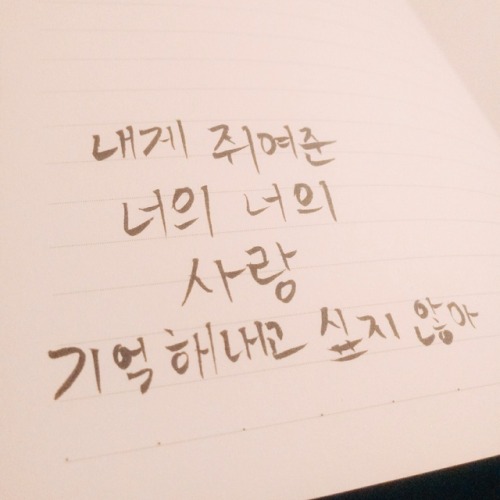 내게 쥐여준
너의 너의
사랑
기억해내고 싶지 않아